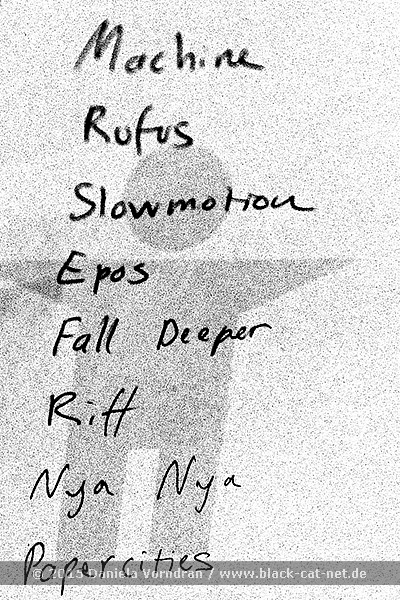 Machine
Rufus
Slowmotion
Epos
Fall Deeper
Riff
Nya Nya
Papercities
© 2015 Daniela Vorndran / www.black-cat-net.de